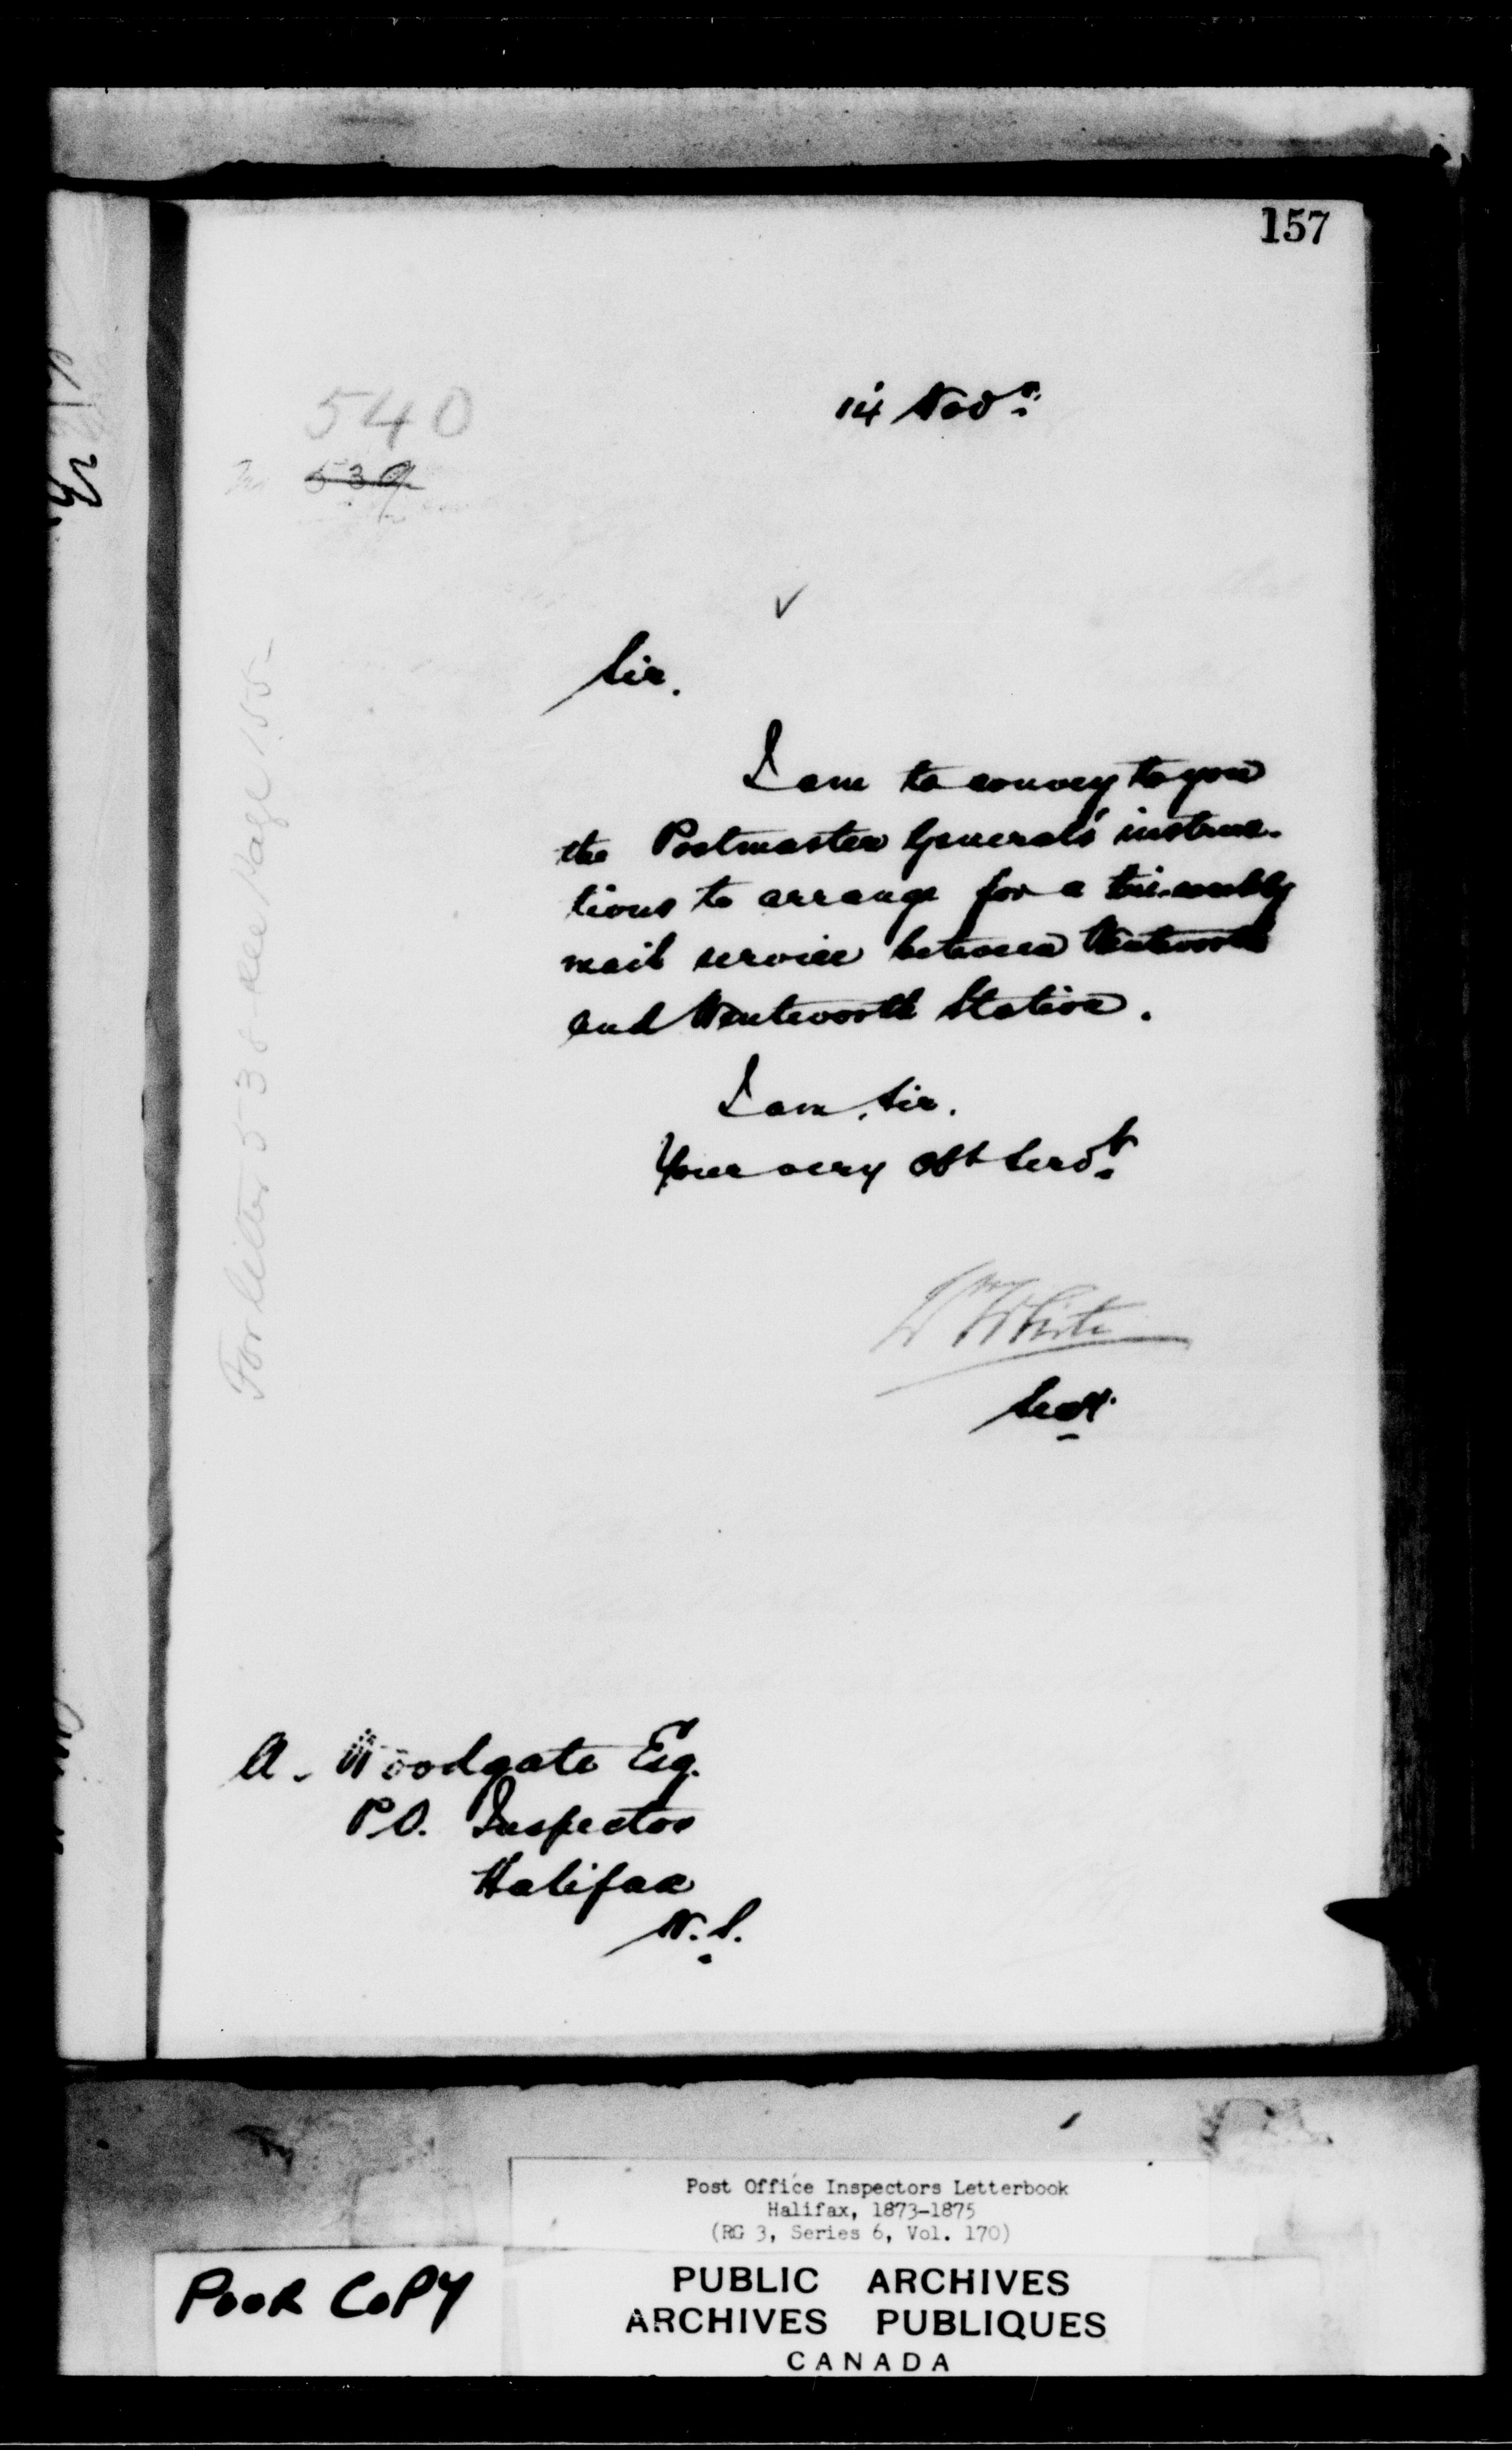 157
14 Novr.
540
539
Sir.
I am to convey to you
the Postmaster General's instruc-
tions to arrange for a tri-weekly
mail service between Wentworth
and Wentworth Station.
I am, Sir.
Your very Obt Servt.
Wm White
Secy.
For letter 538 see page 155-
A. Woodgate Esq.
P.O. Inspector
Halifax
N.S.
Post Office Inspectors Letterbook
Halifax, 1873-1875
(RG 3, Series 6, Vol. 170)
POOR COPY
PUBLIC ARCHIVES
ARCHIVES PUBLIQUES
CANADA